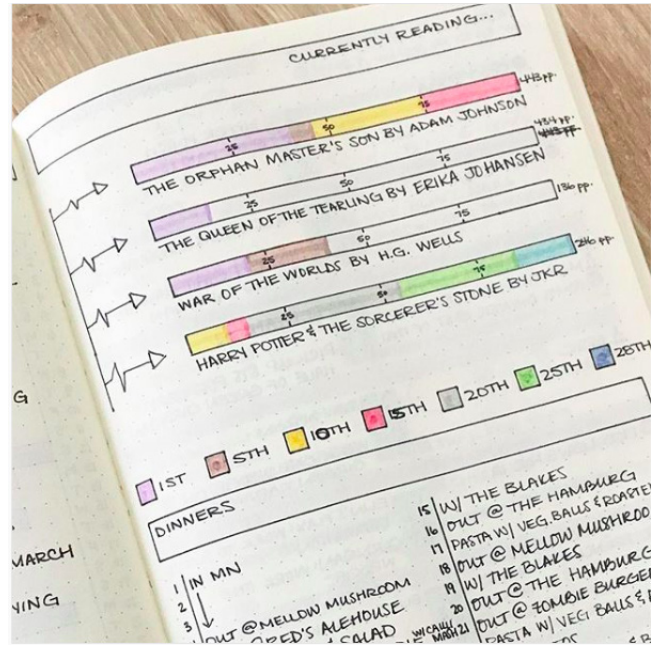 CURRENTLY READING...
443 pp.
25 50 75
THE ORPHAN MASTER'S SON BY ADAM JOHNSON
434 pp.
443 pp.
25 50 75
THE QUEEN OF THE TEARLING BY ERIKA JOHANSEN
136 pp.
25 50 75
WAR OF THE WORLDS BY H.G. WELLS
246 pp.
25 50 75
HARRY POTTER & THE SORCERER'S STONE BY JKR
1ST 5TH 10TH 15TH 20TH 25TH 28TH
DINNERS
1 IN MN
2
3 OUT @ MELLOW MUSHROOM
ALEHOUSE
SALAD
15 W/ THE BLAKES
16 OUT @ THE HAMBURG
17 PASTA W/ VEG. BALLS & ROASTE
18 OUT @ MELLOW MUSHROO
19 W/ THE BLAKES
20 OUT @ THE HAMBURG
21 OUT @ ZOMBIE BURGER
PASTA W/ VEG BALLS &
G
MARCH
YING